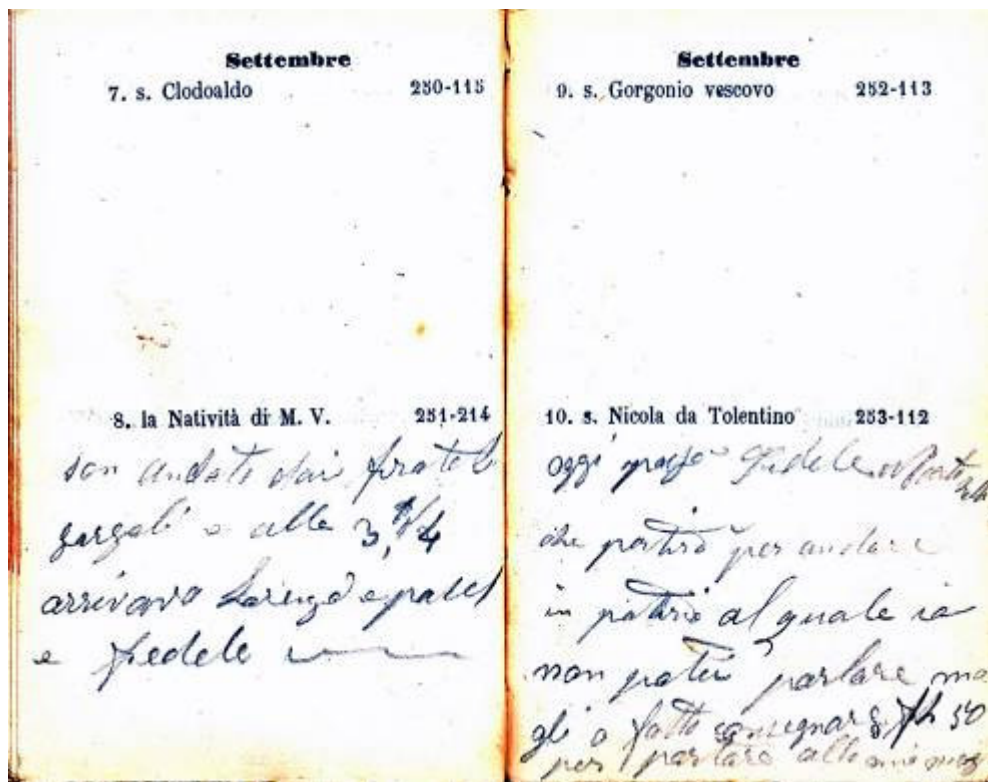 Settembre
7. s. Clodoaldo 250-115
8. la Natività di M. V. 251-214
son andato dai fratel
e alle 3,1/4
arrivavo Lorenzo e
e fedele
Settembre
9. s. Gorgonio vescovo 252-113
10. s. Nicola da Tolentino 253-112
oggi fedele
che partirò per andare
in patria al quale io
non potei parlare ma
gli o fatto consegnare 50
per portare alla mia